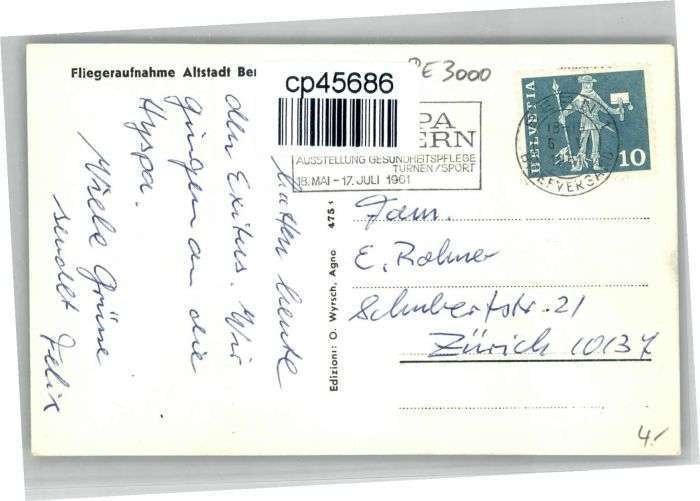 Fliegeraufnahme Altstadt Ber
cp45686
BE 3000
PA
ERN
AUSSTELLUNG GESUNDHEITSPFLEGE
TURNEN/SPORT
18. MAI - 17. JULI 1961
HELVETIA
10
hatten heute
den Exitus. Wir
gingen an die
Hyspa.
Viele Grüsse
sendet Felix
Edizioni: O. Wyrsch, Agno 475
Fam.
E. Rohner
Schubertstr. 21
Zürich 10/37
4.-